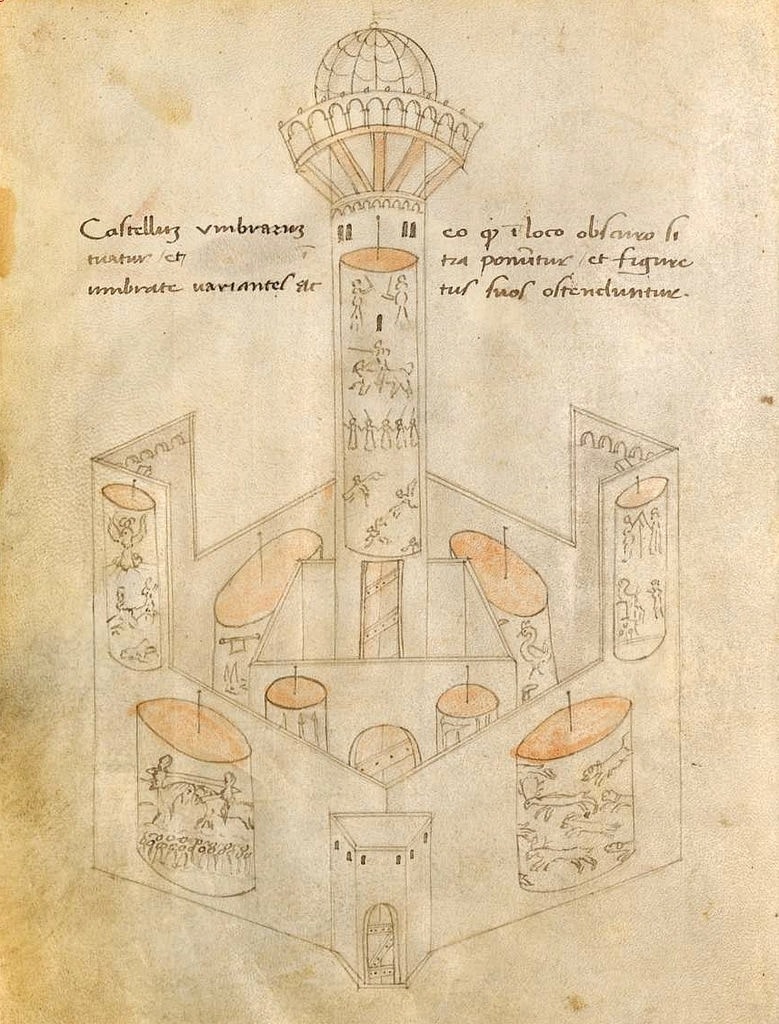 Castelluʒ vmbraruʒ eo qƿ ī loco obscuro si
tuatur et tra ponūtur et figure
umbrate variantes ac tus suos ostenduntur.